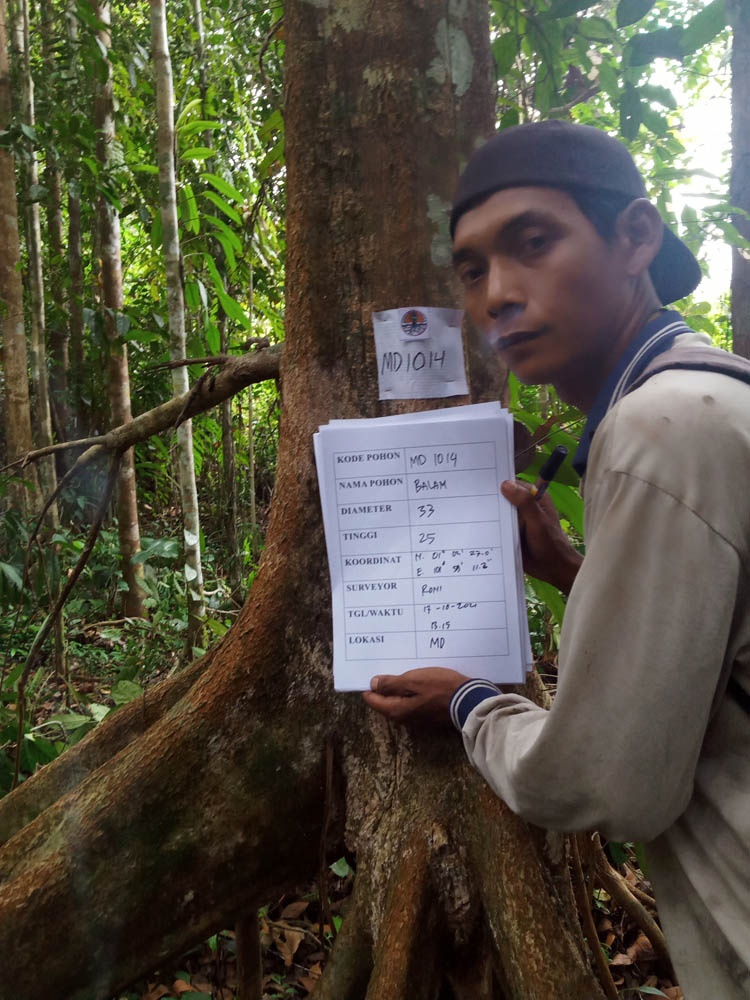 MD1014
KODE POHON MD 1014
NAMA POHON BALAM
DIAMETER 33
TINGGI 25
KOORDINAT N. 01° 27.0'
E. 101° 11.2"
SURVEYOR RONI
TGL/WAKTU 17-10-2021
13.15
LOKASI MD